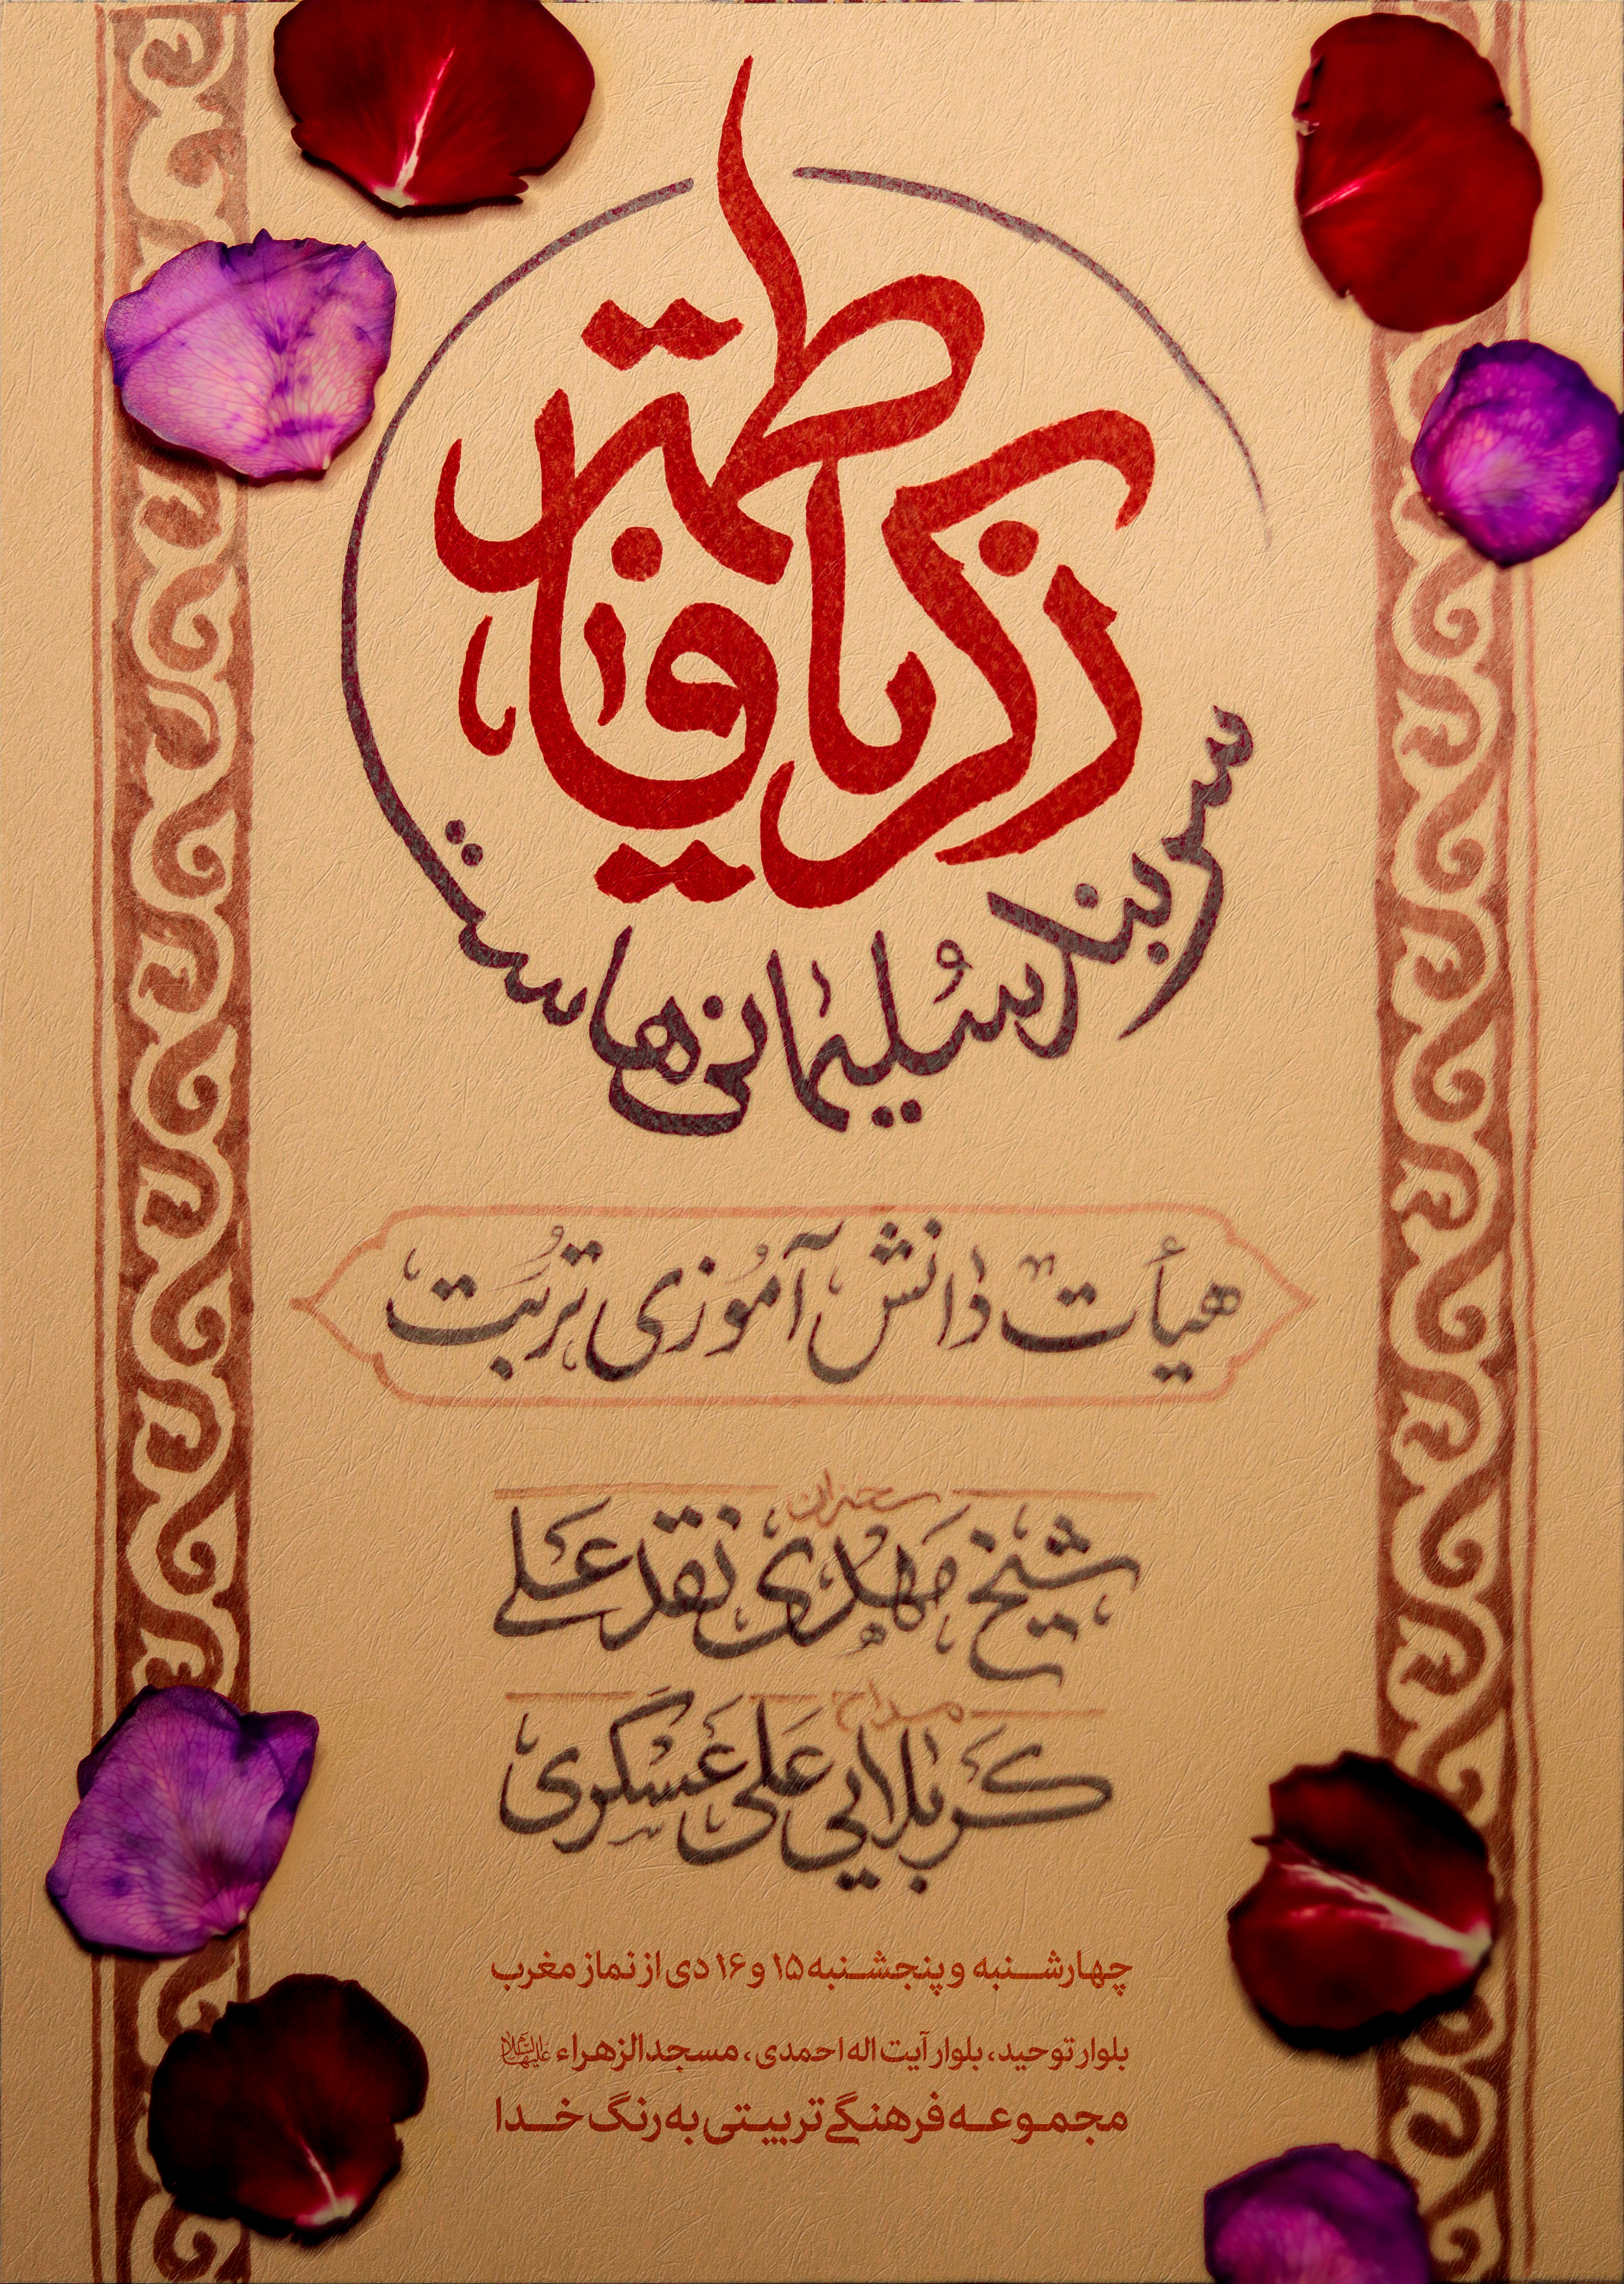 ذکر یا فاطمه
سربند سُلیمانی‌هاست
هیأت دانش آموزی تربت
سخنران
شیخ مهدی نقدعلی
مداح
کربلایی علی عسگری
چهارشنبه و پنجشنبه ۱۵ و ۱۶ دی از نماز مغرب
بلوار توحید، بلوار آیت اله احمدی، مسجد الزهراء علیهاالسلام
مجموعه فرهنگے تربیتی به رنگ خدا